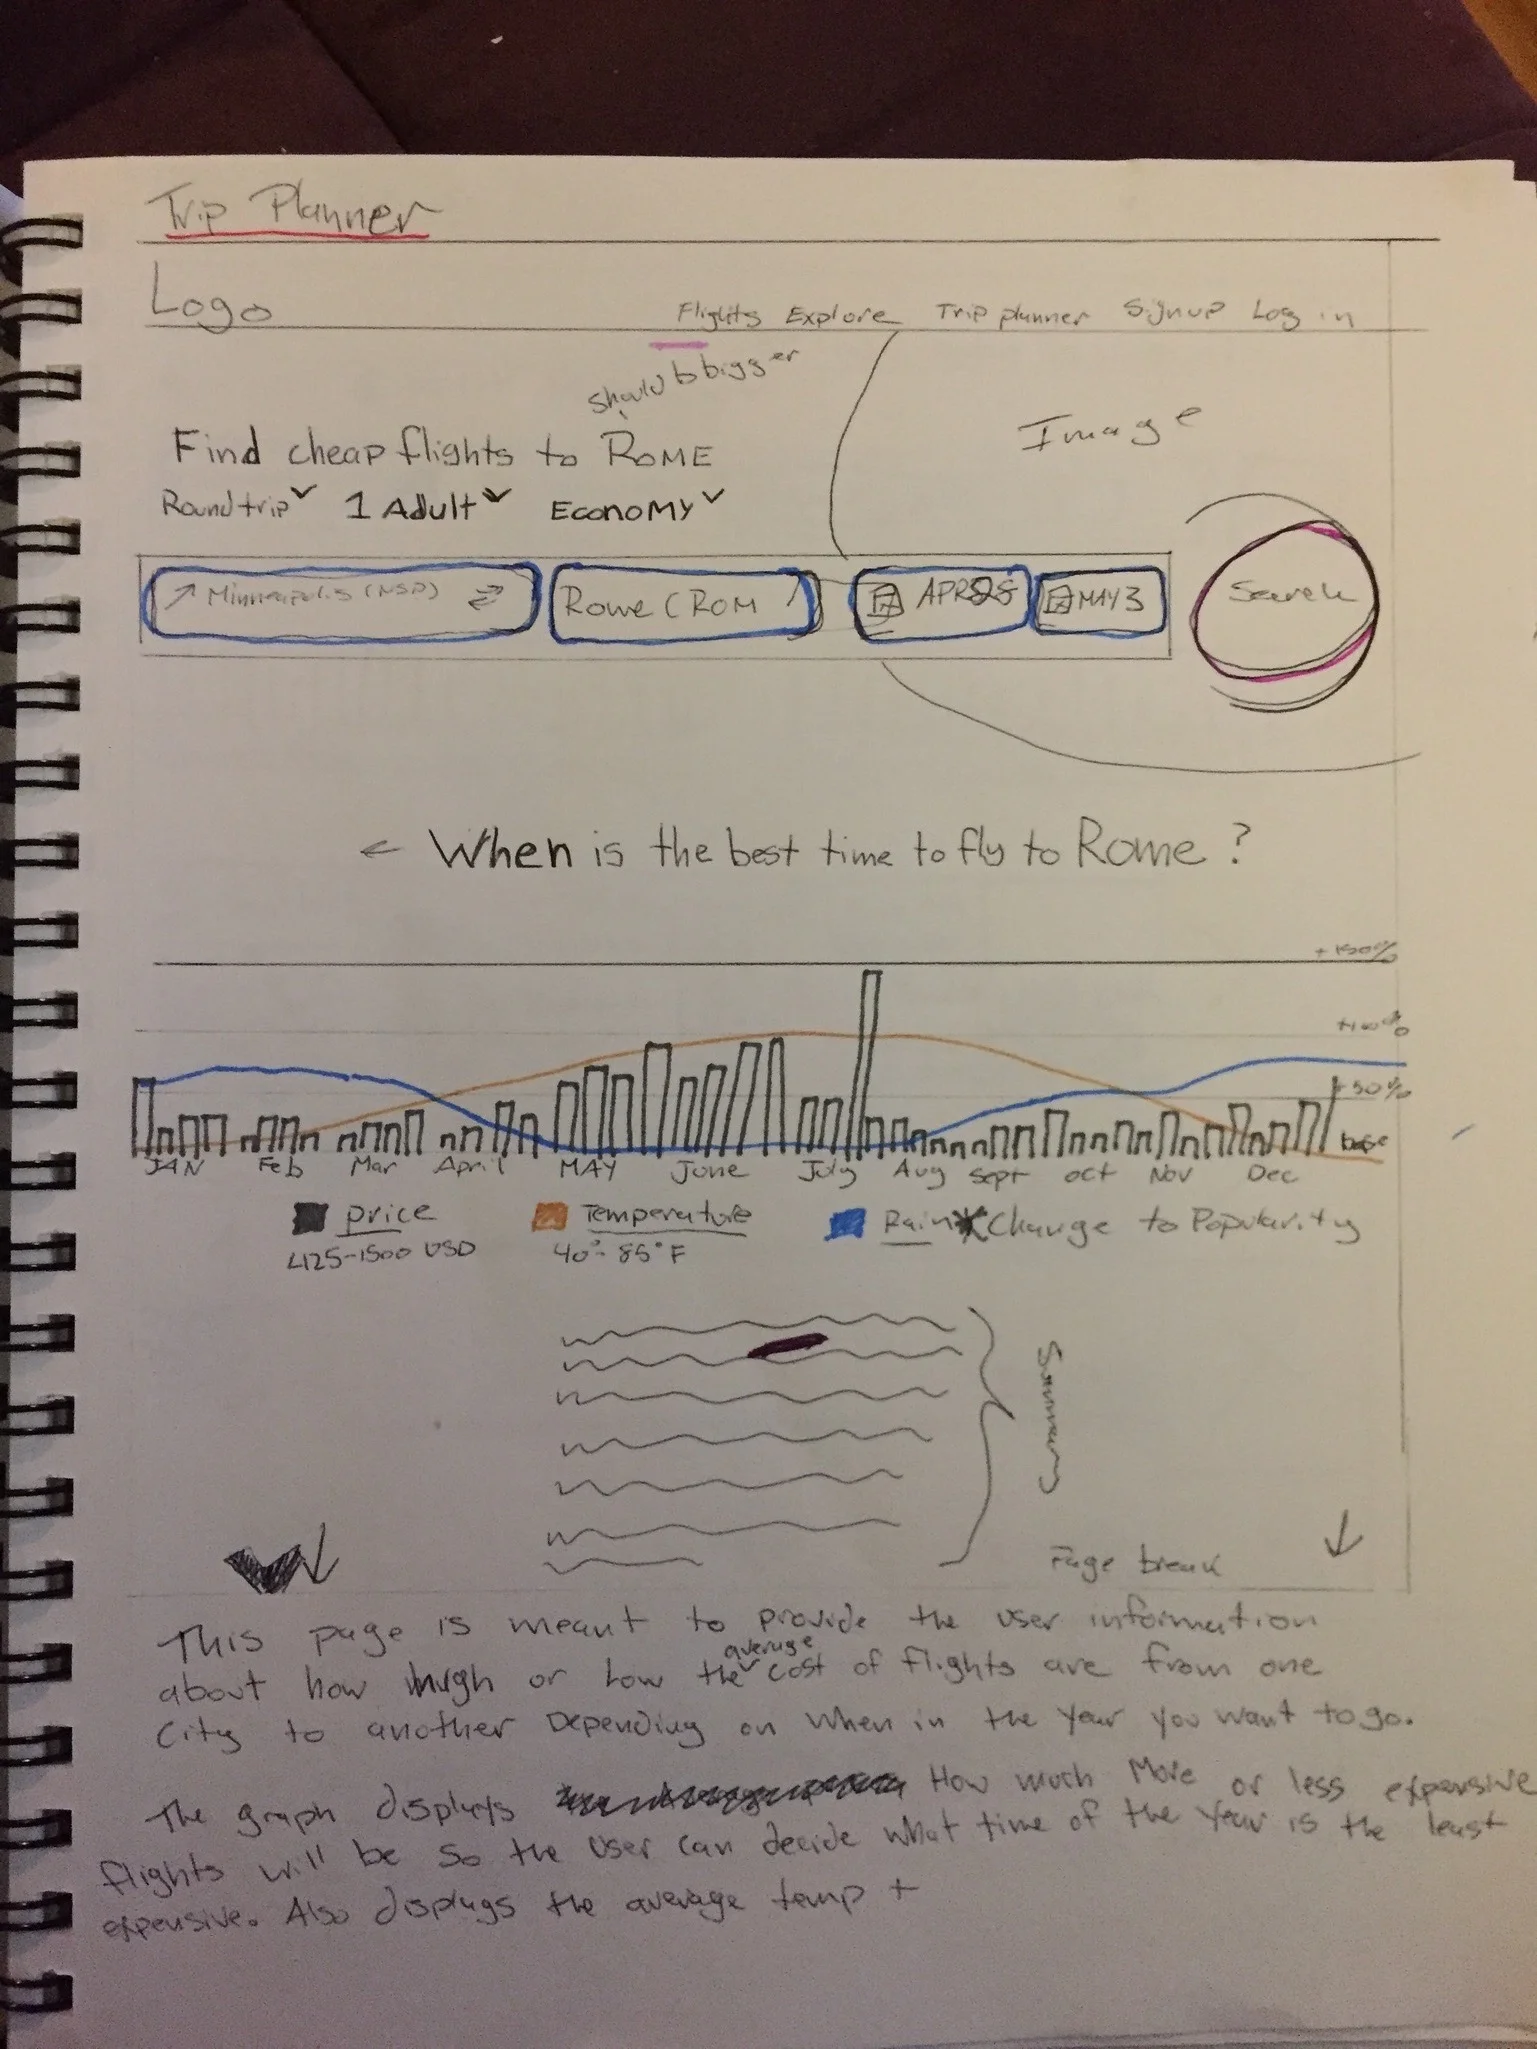 Trip Planner
Logo
Flights Explore Trip planner Signup Log in
should b bigger
Image
Find cheap flights to ROME
Roundtrip 1 Adult Economy
Minneapolis (MSP) Rome (ROM APR 28 MAY 3 Search
← When is the best time to fly to Rome ?
+150%
+100%
+50%
base
JAN Feb Mar April MAY June July Aug Sept Oct Nov Dec
price Temperature Rain * Change to Popularity
425-1500 USD 40°- 85° F
Summary
Page break
This page is meant to provide the user information
average
about how high or low the cost of flights are from one
City to another Depending on when in the year you want to go.
The graph displays How much More or less expensive
flights will be so the user can decide what time of the year is the least
expensive. Also displays the average temp +